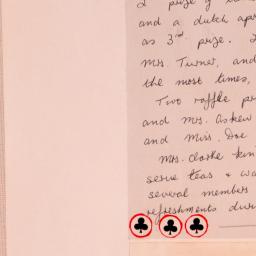 and a dutch
as 3rd prize.
Mrs. Turner, and
the most times,
Two raffle
and Mrs. Askew
and Miss. Doe
Mrs. Clarke
serve teas &
several members
refreshments